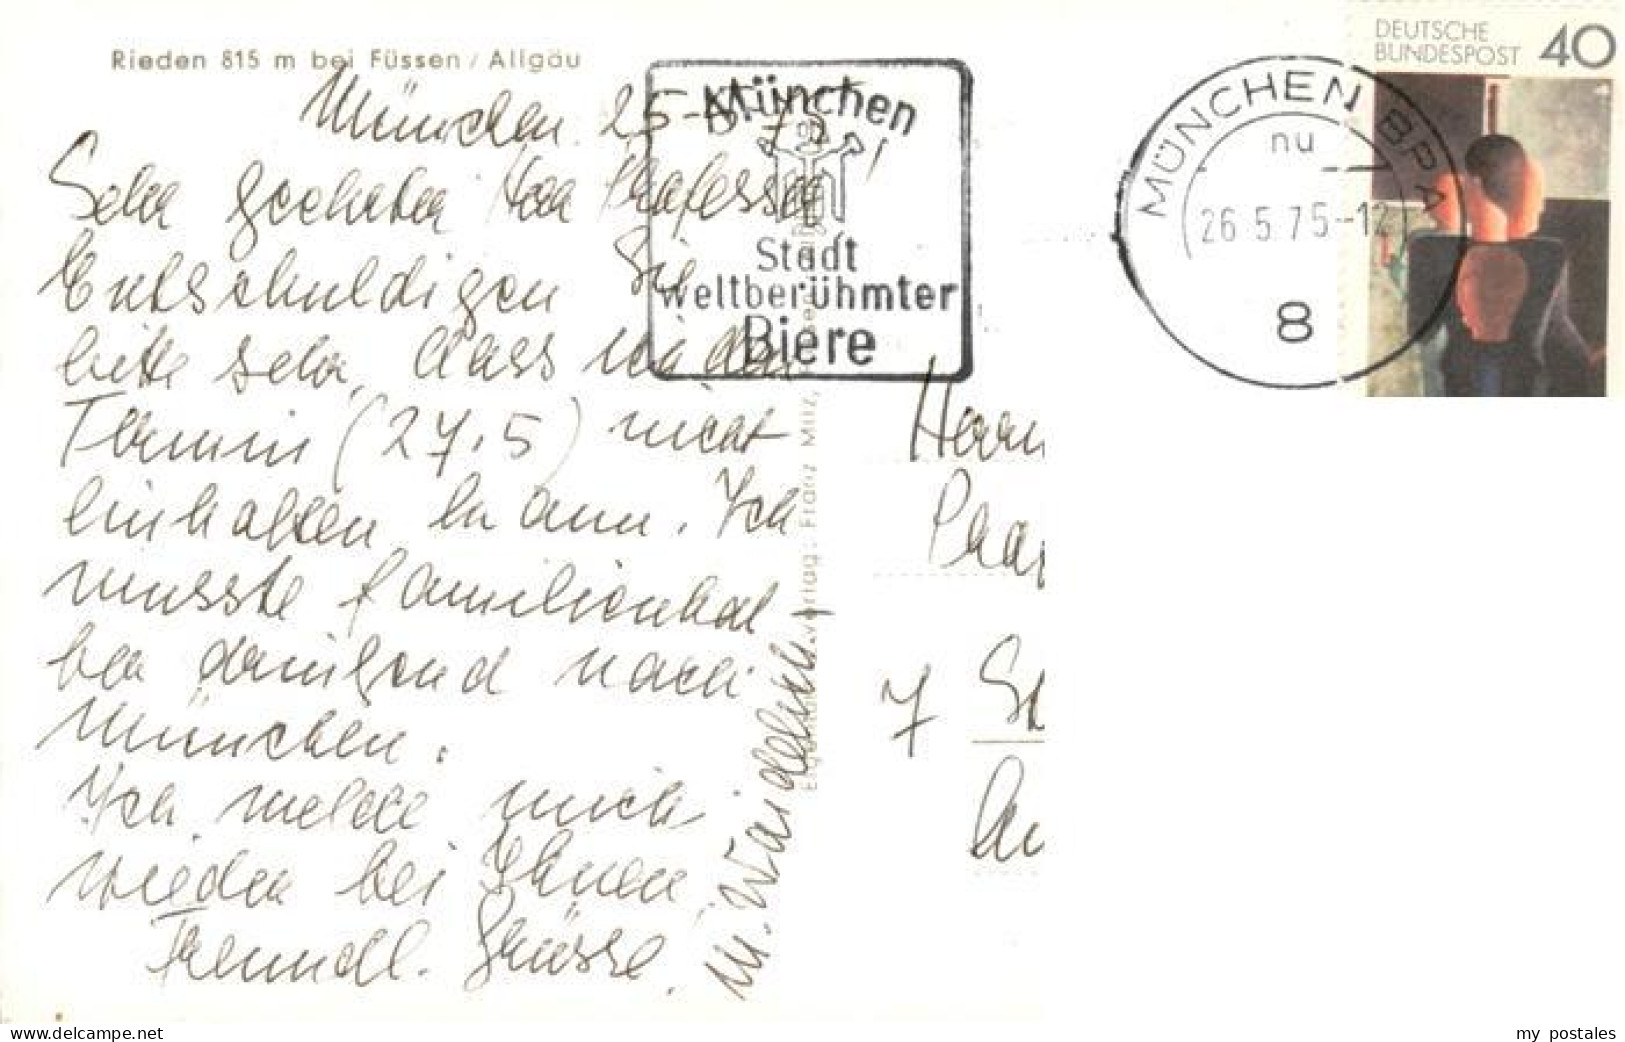 Rieden 815 m bei Füssen / Allgäu
München 25-5-75
Sehr geehrter Herr Professor!
Entschuldigen Sie
bitte sehr, dass ich den
Termin (27.5) nicht
einhalten kann. Ich
musste familienhal-
ber dringend nach
München.
Ich melde mich
wieder bei Ihnen.
Freundl. Grüsse.
München
Stadt
weltberühmter
Biere
MÜNCHEN BPA
nu
26.5.75-12
8
DEUTSCHE
BUNDESPOST 40
Herrn
7 St
Verlag: Franz Milz,
www.delcampe.net
my_postales